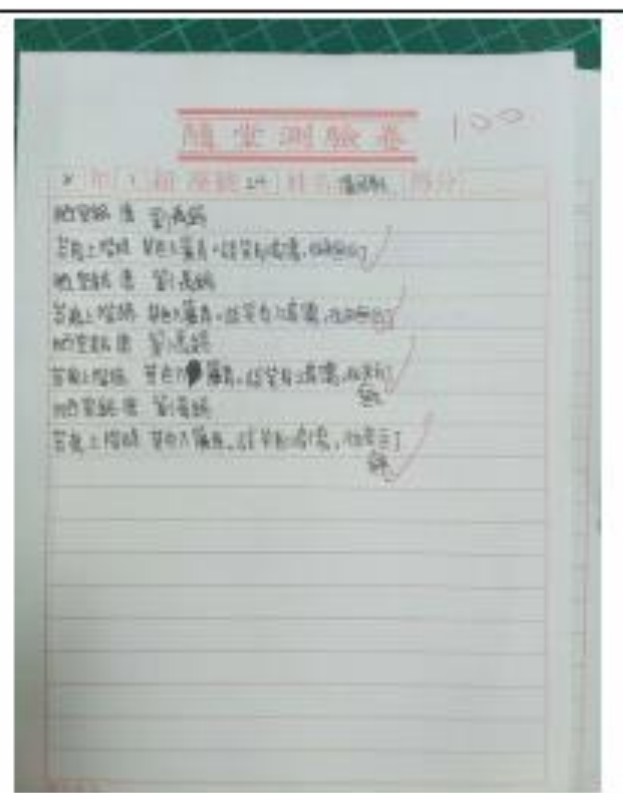 隨堂測驗卷 100
年 班 座號 24 姓名 得分
陋室銘 唐 劉禹錫
苔痕上階綠 草色入簾青。談笑有鴻儒,往來無白丁
陋室銘 唐 劉禹錫
苔痕上階綠 草色入簾青。談笑有鴻儒,往來無白丁
陋室銘 唐 劉禹錫
苔痕上階綠 草色入簾青。談笑有鴻儒,往來
陋室銘 唐 劉禹錫
苔痕上階綠 草色入簾青。談笑有鴻儒,往來